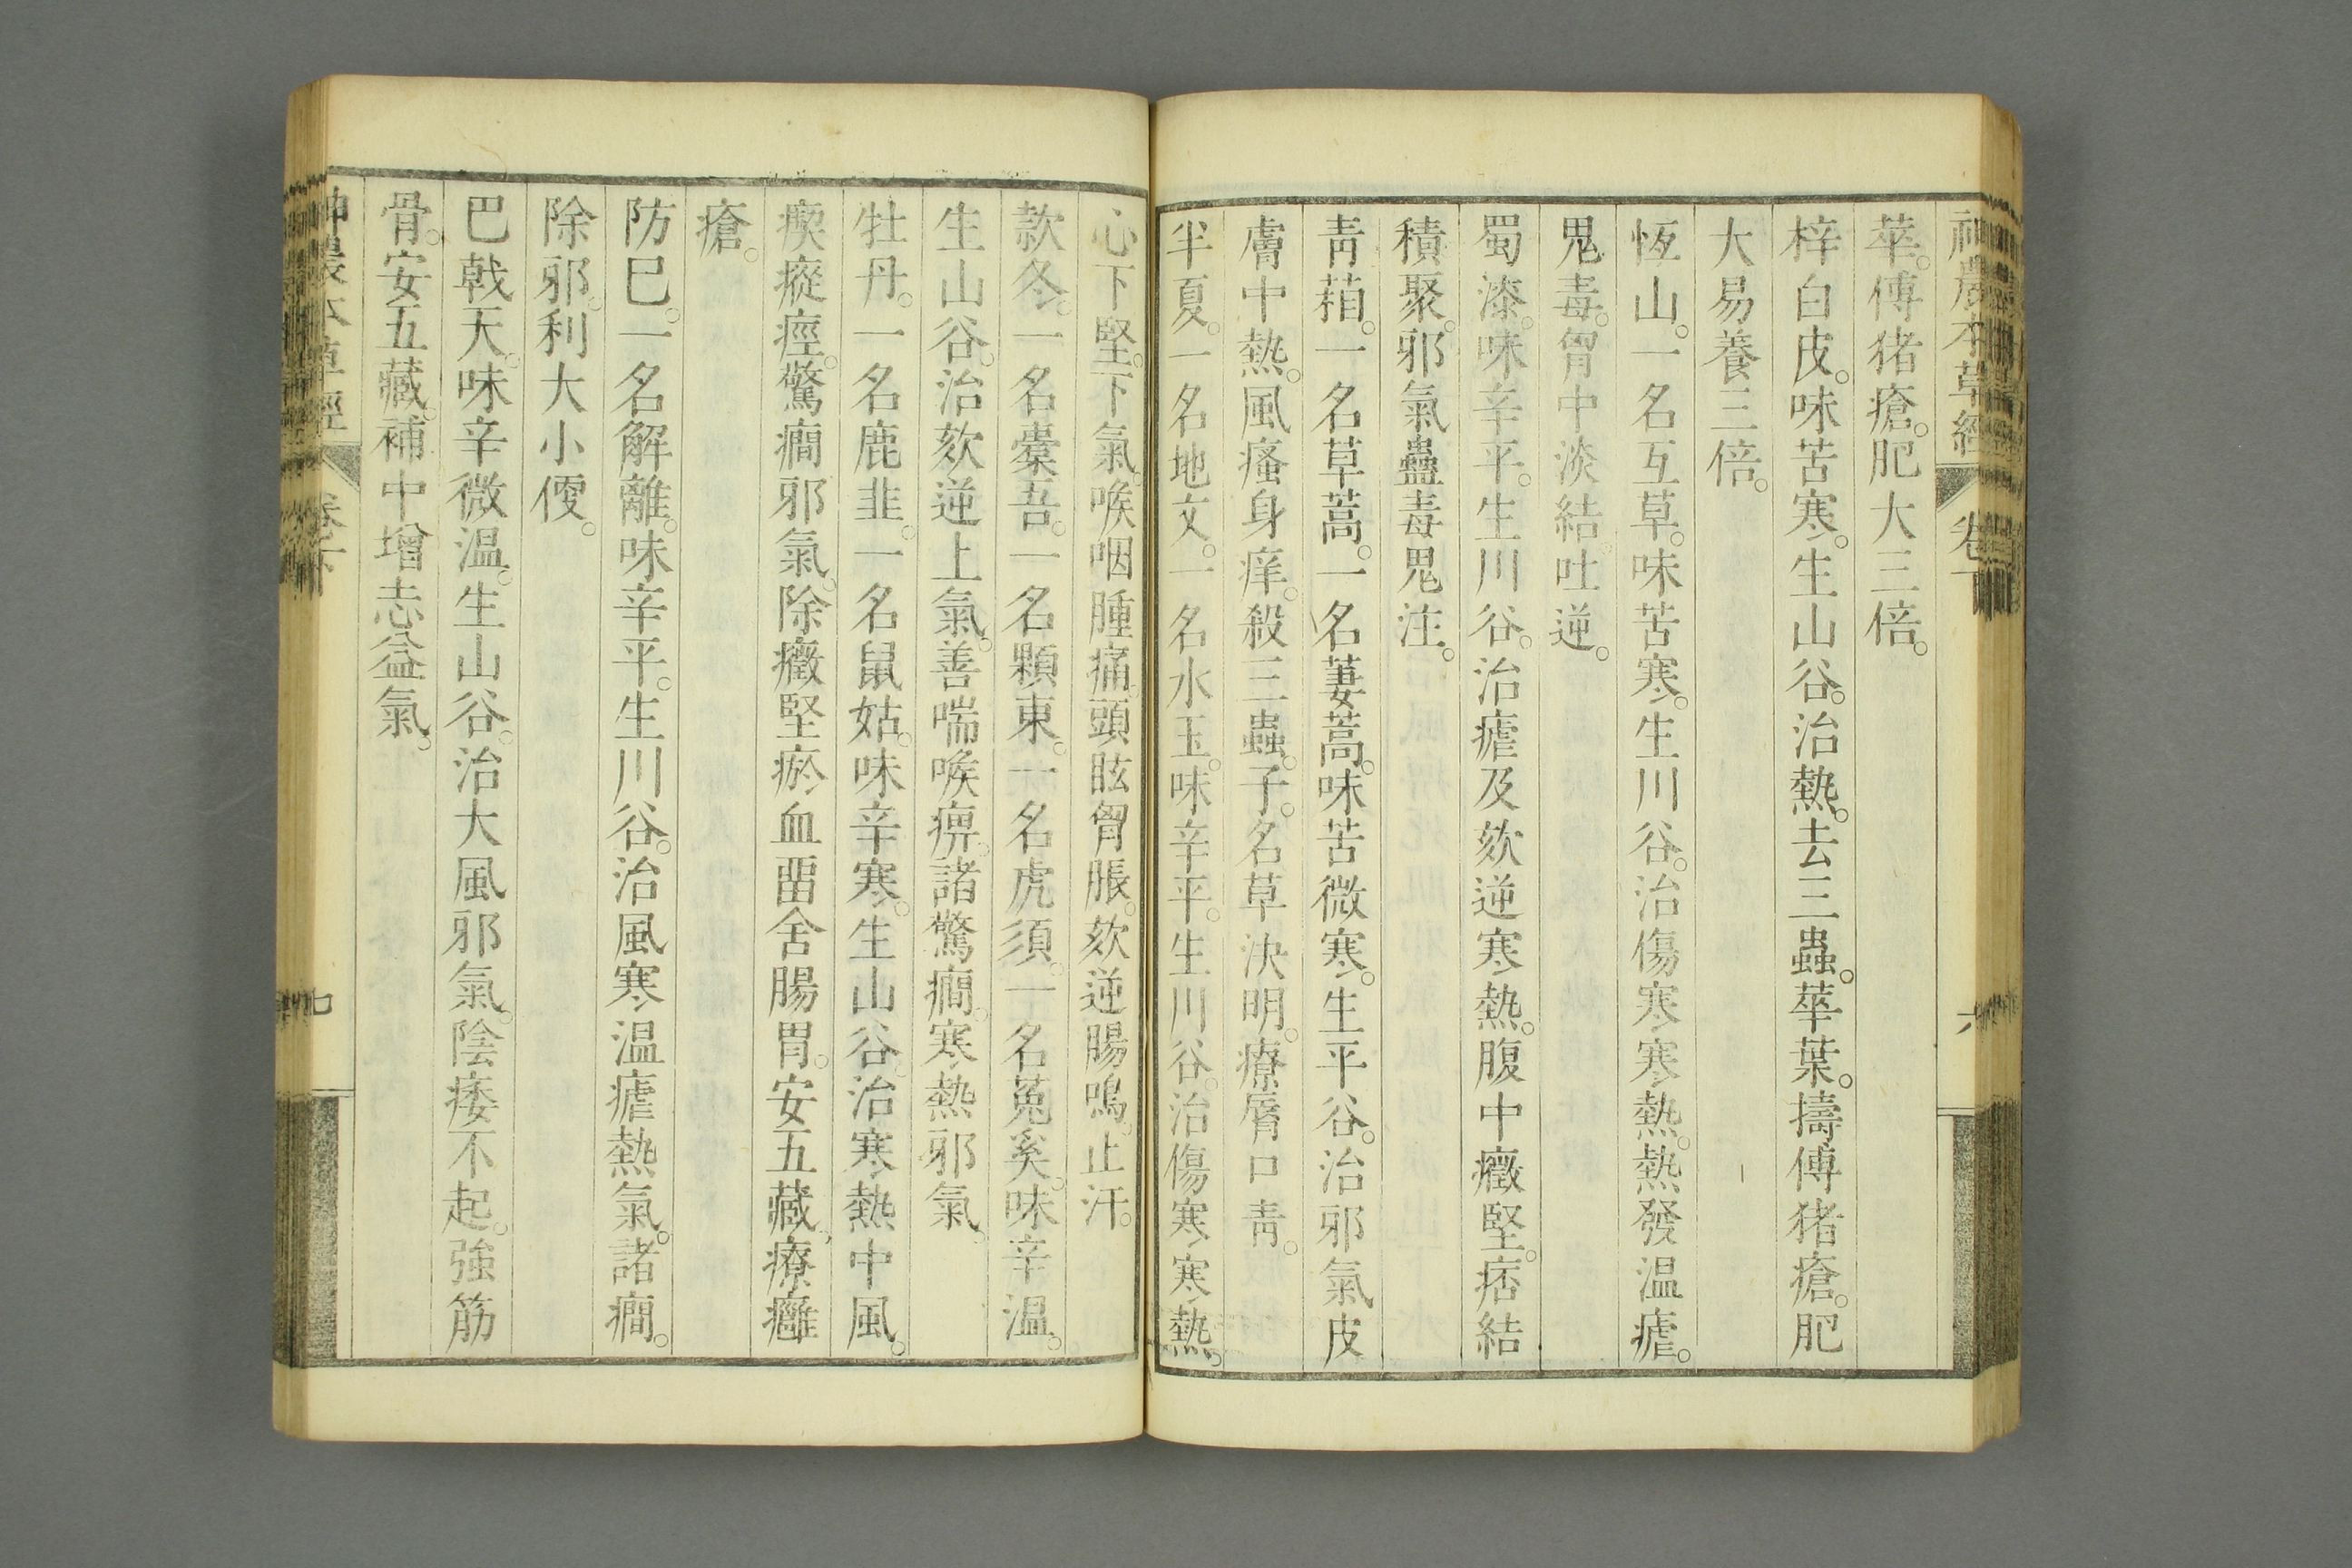 神農本草經 卷下 六
華。傅猪瘡。肥大三倍。
梓白皮。味苦寒。生山谷。治熱。去三蟲。華葉。擣傅猪瘡。肥
大易養三倍。
恆山。一名互草。味苦寒。生川谷。治傷寒寒熱。熱發温瘧。
鬼毒。胷中淡結吐逆。
蜀漆。味辛平。生川谷。治瘧及欬逆寒熱。腹中癥堅。痞結
積聚。邪氣蠱毒鬼注。
青葙。一名草蒿。一名萋蒿。味苦微寒。生平谷。治邪氣皮
膚中熱。風瘙身痒。殺三蟲。子。名草決明。療脣口青。
半夏。一名地文。一名水玉。味辛平。生川谷。治傷寒寒熱。
心下堅。下氣。喉咽腫痛。頭眩胷脹。欬逆腸鳴。止汗。
款冬。一名橐吾。一名顆東。一名虎須。一名菟奚。味辛温。
生山谷。治欬逆上氣。善喘喉痹。諸驚癇。寒熱邪氣。
牡丹。一名鹿韭。一名鼠姑。味辛寒。生山谷。治寒熱中風。
瘈瘲痙。驚癇邪氣。除癥堅瘀血畱舍腸胃。安五藏。療癰
瘡。
防巳。一名解離。味辛平。生川谷。治風寒温瘧熱氣。諸癇。
除邪。利大小便。
巴戟天。味辛微温。生山谷。治大風邪氣。陰痿不起。強筋
骨。安五藏。補中增志益氣。
神農本草經 卷下 七